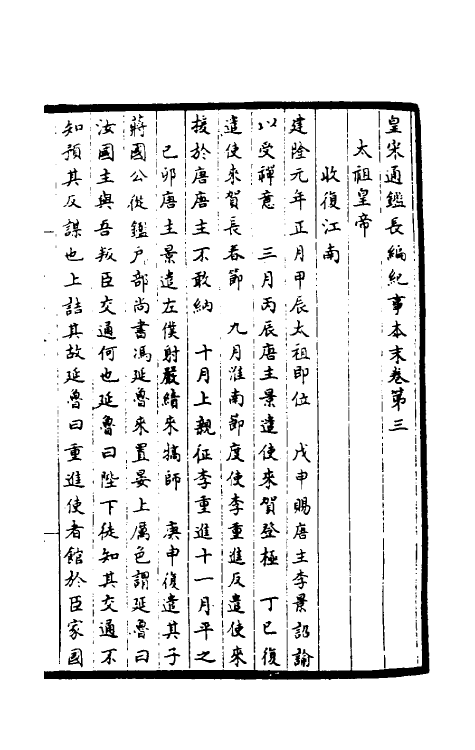 皇宋通鑑長編紀事本末卷第三
太祖皇帝
收復江南
建隆元年正月甲辰太祖即位　戊申賜唐主李景詔諭
以受禪意　三月丙辰唐主景遣使來賀登極　丁巳復
遣使來賀長春節　九月淮南節度使李重進反遣使來
援於唐唐主不敢納　十月上親征李重進十一月平之
己卯唐主景遣左僕射嚴續來犒師　庚申復遣其子
蔣國公從鑑戶部尚書馮延魯來置宴上厲色謂延魯曰
汝國主與吾叛臣交通何也延魯曰陛下徒知其交通不
知預其反謀也上詰其故延魯曰重進使者館於臣家國